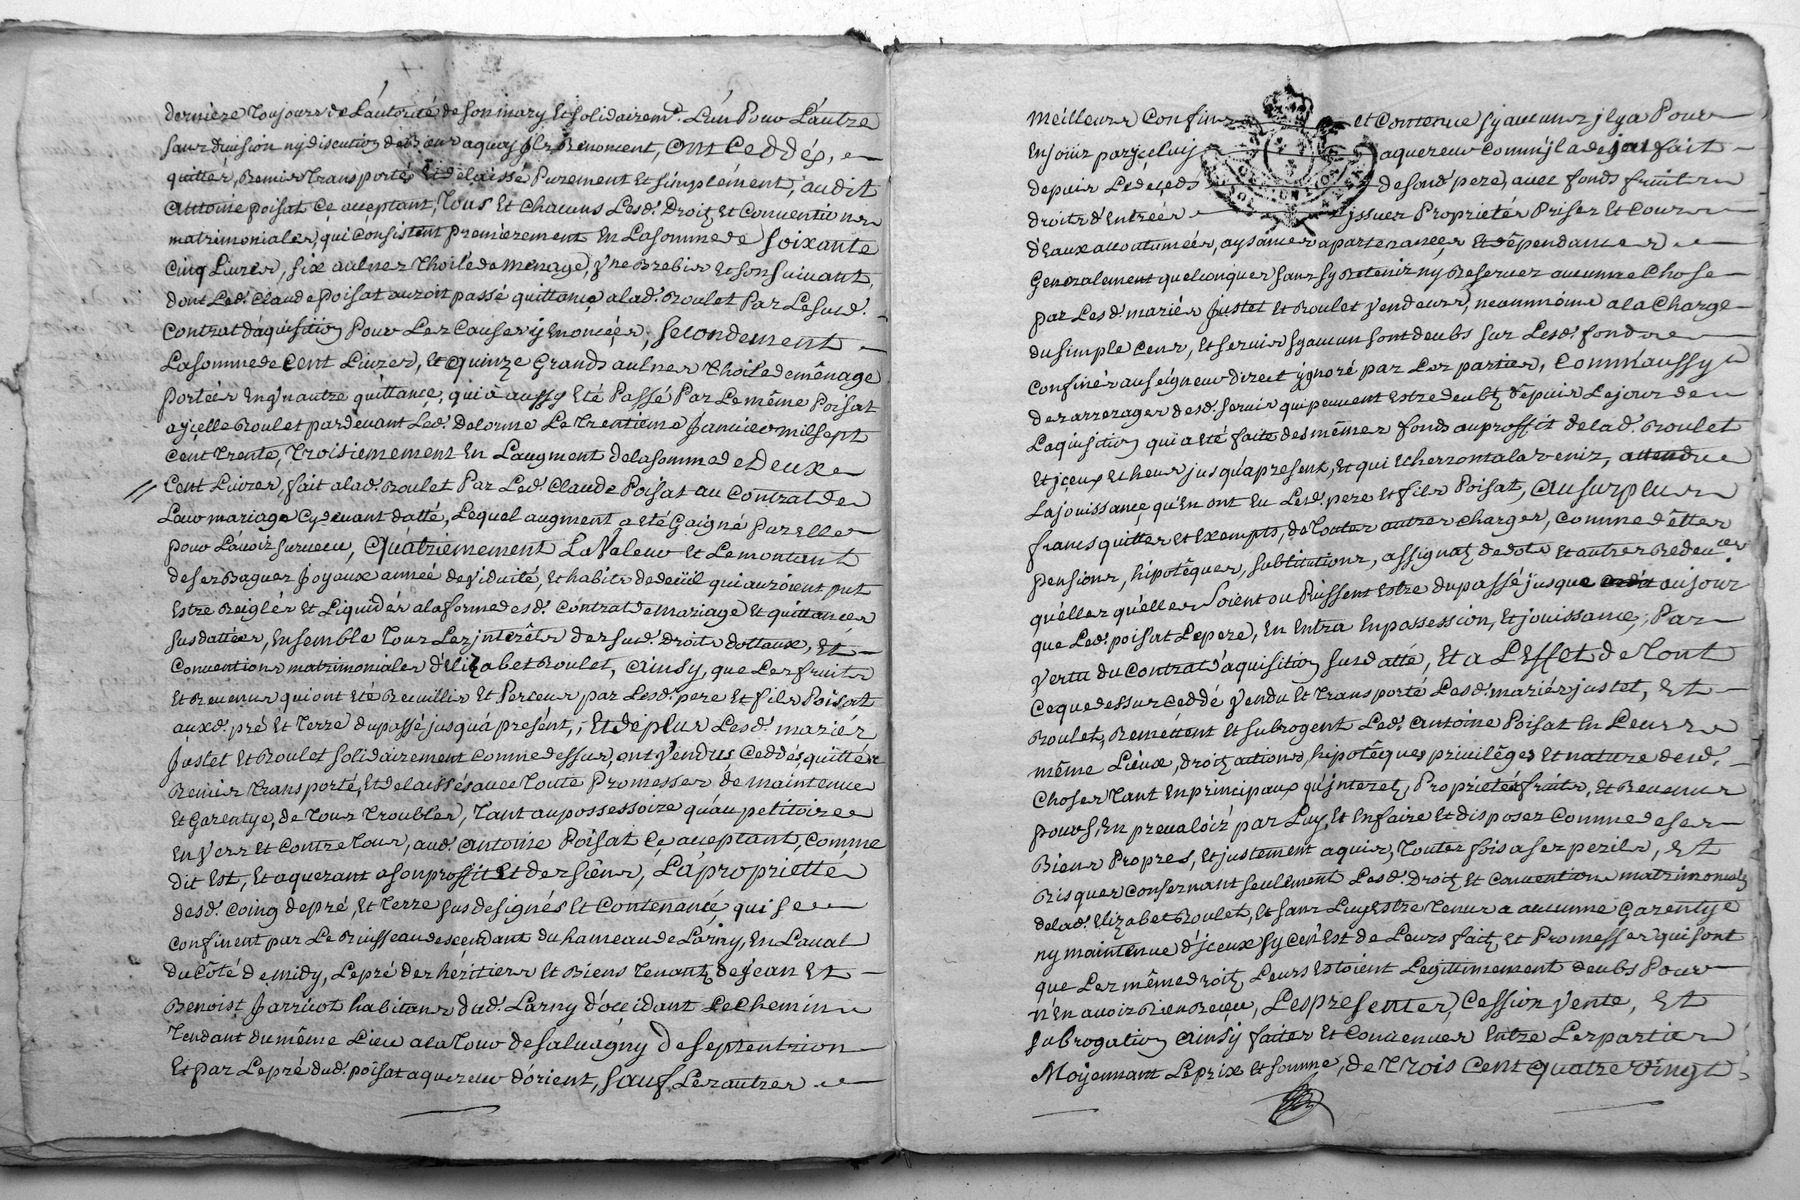 derniere toujours de L'autorité de son mary et solidairemt. L'un Pour L'autre
sans division ny discution de Biens aquoy ils Renoncent, Ont Ceddéz,
quitter, Remis Transportés Et delaissé Purement Et simplement, audit
Antoine poisat Ce acceptant, Tous Et Chacuns Lesd. Droitz Et Conventions
matrimoniales, qui Consistent premierement En Lasomme de Soixante
Cinq Livres, six aulnes Thoile de Menage, yne Brebis et son suivant,
dont Led. Claude poisat auroit passé quittance alad. Roulet Par Lesud.
Contrat d'aquisition Pour Les Causes y Enoncées, Secondement
Lasomme de Cent Livres, Et quinze Grands aulnes Thoile de mênage
portées En yn autre quittance, qui à aussy Eté Passé Par Le même Poisat
ayçelle Roulet pardevant Led. delorme Le Trentieme Janvier mil sept
cent Trente, Troisiemement En L'augment delasomme de Deux
Cent Livres, fait alad. Roulet Par Led. Claude Poisat au Contrat de
Leur mariage Cydevant datté, Lequel augment a Eté Gaigné Par elle
pour L'avoir survecu, Quatriemement La Valeur Et Le montant
de ses Bagues Joyaux année de viduité, Et habits de deüil qui auroient put
Estre Reiglés Et Liquidés ala forme desd. Contrat de Mariage Et quittances
susdattées, Ensemble Tous Les jnterêts des sud. droits dottaux, Et
Conventions matrimoniales d'Elizabet Roulet, Ainsy, que Les fruits
Et Revenus qui ont Eté Recuillis Et Perceus par Lesd. pere Et fils Poisat
auxd. pré Et Terre du passé jusqu'a présent, Et de plus Lesd. mariés
Justet Et Roulet solidairement Comme dessus, ont Vendus Ceddés, quittés
Remis Transporté, Et delaissés avec Toute Promesses de maintenue
Et Garentye, de Tous Troubles, Tant au possessoire qu'au petitoire
Envers Et Contre Tous, aud. Antoine Poisat Ce acceptant, Comme
dit Est, Et aquerant a son proffit Et des siens, La proprietté
desd. Coing de pré, Et Terre sus designés Et Contenance qui se
Confinent par Le Ruisseau descendant du hameau de Larny, En Laval
du Côté de midy, Le pré des héritiers Et Biens Tenantz de Jean Et
Benoist Jarricot habitans dud. Larny d'occidant Le Chemin
Tendant du même Lieu ala Tour de Salvagny de septentrion
Et par Le pré dud. poisat aquereur d'orient, Sauf Les autres
Meilleurs Confins et Contenue sy aucuns jl y a Pour
En joüir par yceluy aquereur Comm'jl a desja fait
depuis Le deçeds de son d. pere, avec fonds fruits
droits d'Entrées jssues Proprietés Prises Et Cours
d'Eaux accoutumées, aysances apartenances, Et dépendances
Generalement quelconques sans sy Retenir ny Reserver aucunne Chose
par Lesd. mariés Justet et Roulet Vendeurs, neanmoins ala Charge
du simple Cens, Et servis sy aucun sont deubs sur Lesd. fonds
Confinés au seigneur direct ygnoré par Les parties, Comm'aussy
des arrerages desd. servis qui peuvent Estre deubtz depuis Le jour de
L'aquisition qui a été faite des mêmes fonds au proffit de lad. Roulet
Et yceux Echeus jusqu'apresent, Et qui Echerront ala venir, attendu
La jouissance qu'En ont Eu Lesd. pere Et fils Poisat, Au surplus
francs quittes Et Exempts, de Toutes autres charges, Comme dêttes
pensions, hipotêques, substitutions, assignatz de dots Et autres Redevces
qu'elles qu'elles Soient ou Puissent Estre du passé jusque aujour
que Led. poisat Le pere, En Entra En possession, Et jouissance, Par
Vertu du Contrat d'aquisition susdatté, Et a L'effet de Tout
Ce que dessus Ceddé Vendu Et Transporté Lesd. mariés justet, Et
Roulet, Remettent Et subrogent Led. Antoine Poisat En Leurs
même Lieux, droitz actions, hipotêques, privilêges Et nature desd.
Choses Tant En principaux qu'jnteretz, Proprietés fruits, Et Revenus
pour s'En prevaloir par Luy, Et En faire Et disposer Comme de ses
Biens Propres, Et justement aquis, Toutes fois a ses perils, Et
Risques Consernant seulement Lesd. Droitz Et Convention matrimonialz
delad. Elizabet Roulet, Et sans Luy Estre Tenus a aucunne Garentye
ny maintenue d'yceux sy ce n'Est de Leurs faitz Et Promesses qui sont
que Les même droitz Leurs Estoient Legittimement deubs Pour
n'En avoir Rien Reçeu, Les presentes, Cession Vente, Et
subrogation Ainsy faites Et Convenues Entre Les parties
Moyennant Le prix Et somme, de Trois Cent quatre Vingt